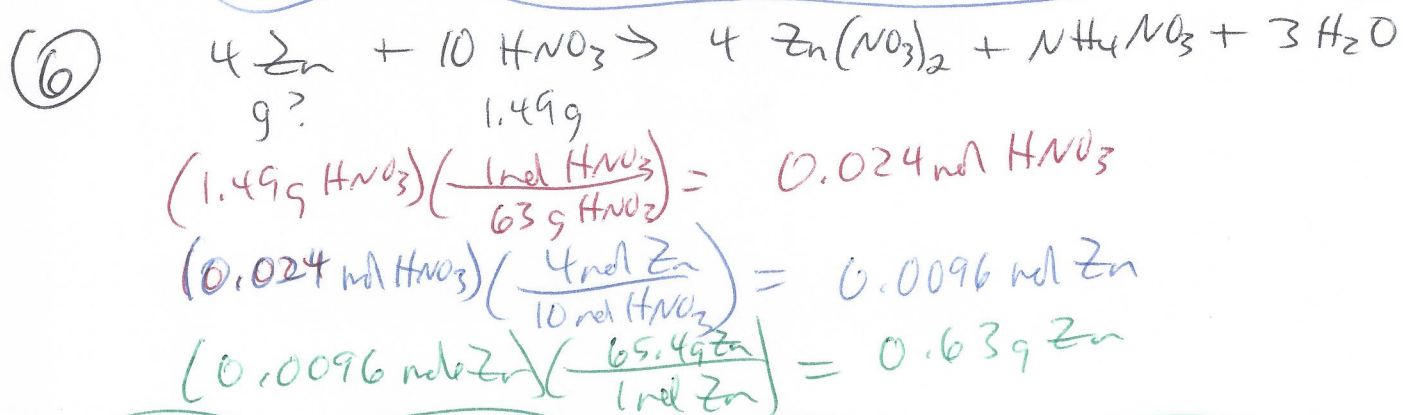 (6) 4 Zn + 10 HNO3 → 4 Zn(NO3)2 + NH4NO3 + 3 H2O
g? 1.49g
(1.49g HNO3)(1 mol HNO3 / 63 g HNO3) = 0.024 mol HNO3
(0.024 mol HNO3)(4 mol Zn / 10 mol HNO3) = 0.0096 mol Zn
(0.0096 mole Zn)(65.4g Zn / 1 mol Zn) = 0.63g Zn